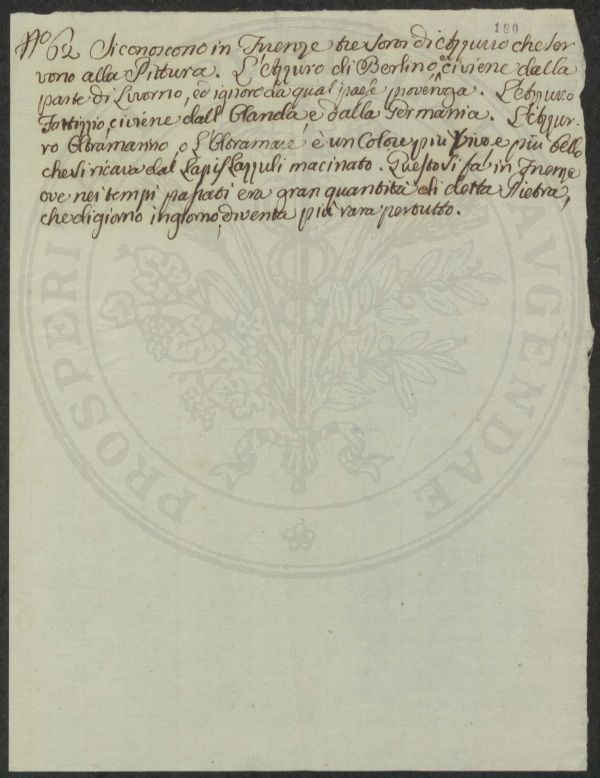 180
No 62 Si conoscono in Firenze tre sorsi di Azzurro che ser
vono alla Pittura. L'Azzuro di Berlino ci viene dalla
parte di Livorno, ed ignoro da qual paese provenga. L'Azzurro
Fattizzio, ci viene dall'Olanda, e dalla Germania. L'Azzur-
ro Oltramarino, o L'Oltramare, è un Colore più Vivo e più bello
che si ricava dal Lapis Lazzuli macinato. Questo si fà in Firenze
ove nei tempi passati era gran quantità di detta Pietra,
che di giorno in giorno, diventa più rara pertutto.
PROSPERI
AVGENDAE